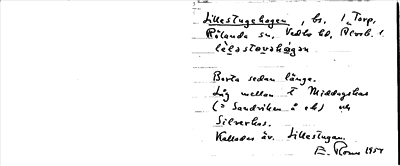 Lillestugehagen, bs. 1 Torp,
Rölanda sn, Vedbo hd, Älvsb. l.
lèlastovahágan
Borta sedan länge.
Låg mellan t Middagshus
(= Sandviken å ek) och
Silverhus.
Kallades äv. Lillestugan.
1957